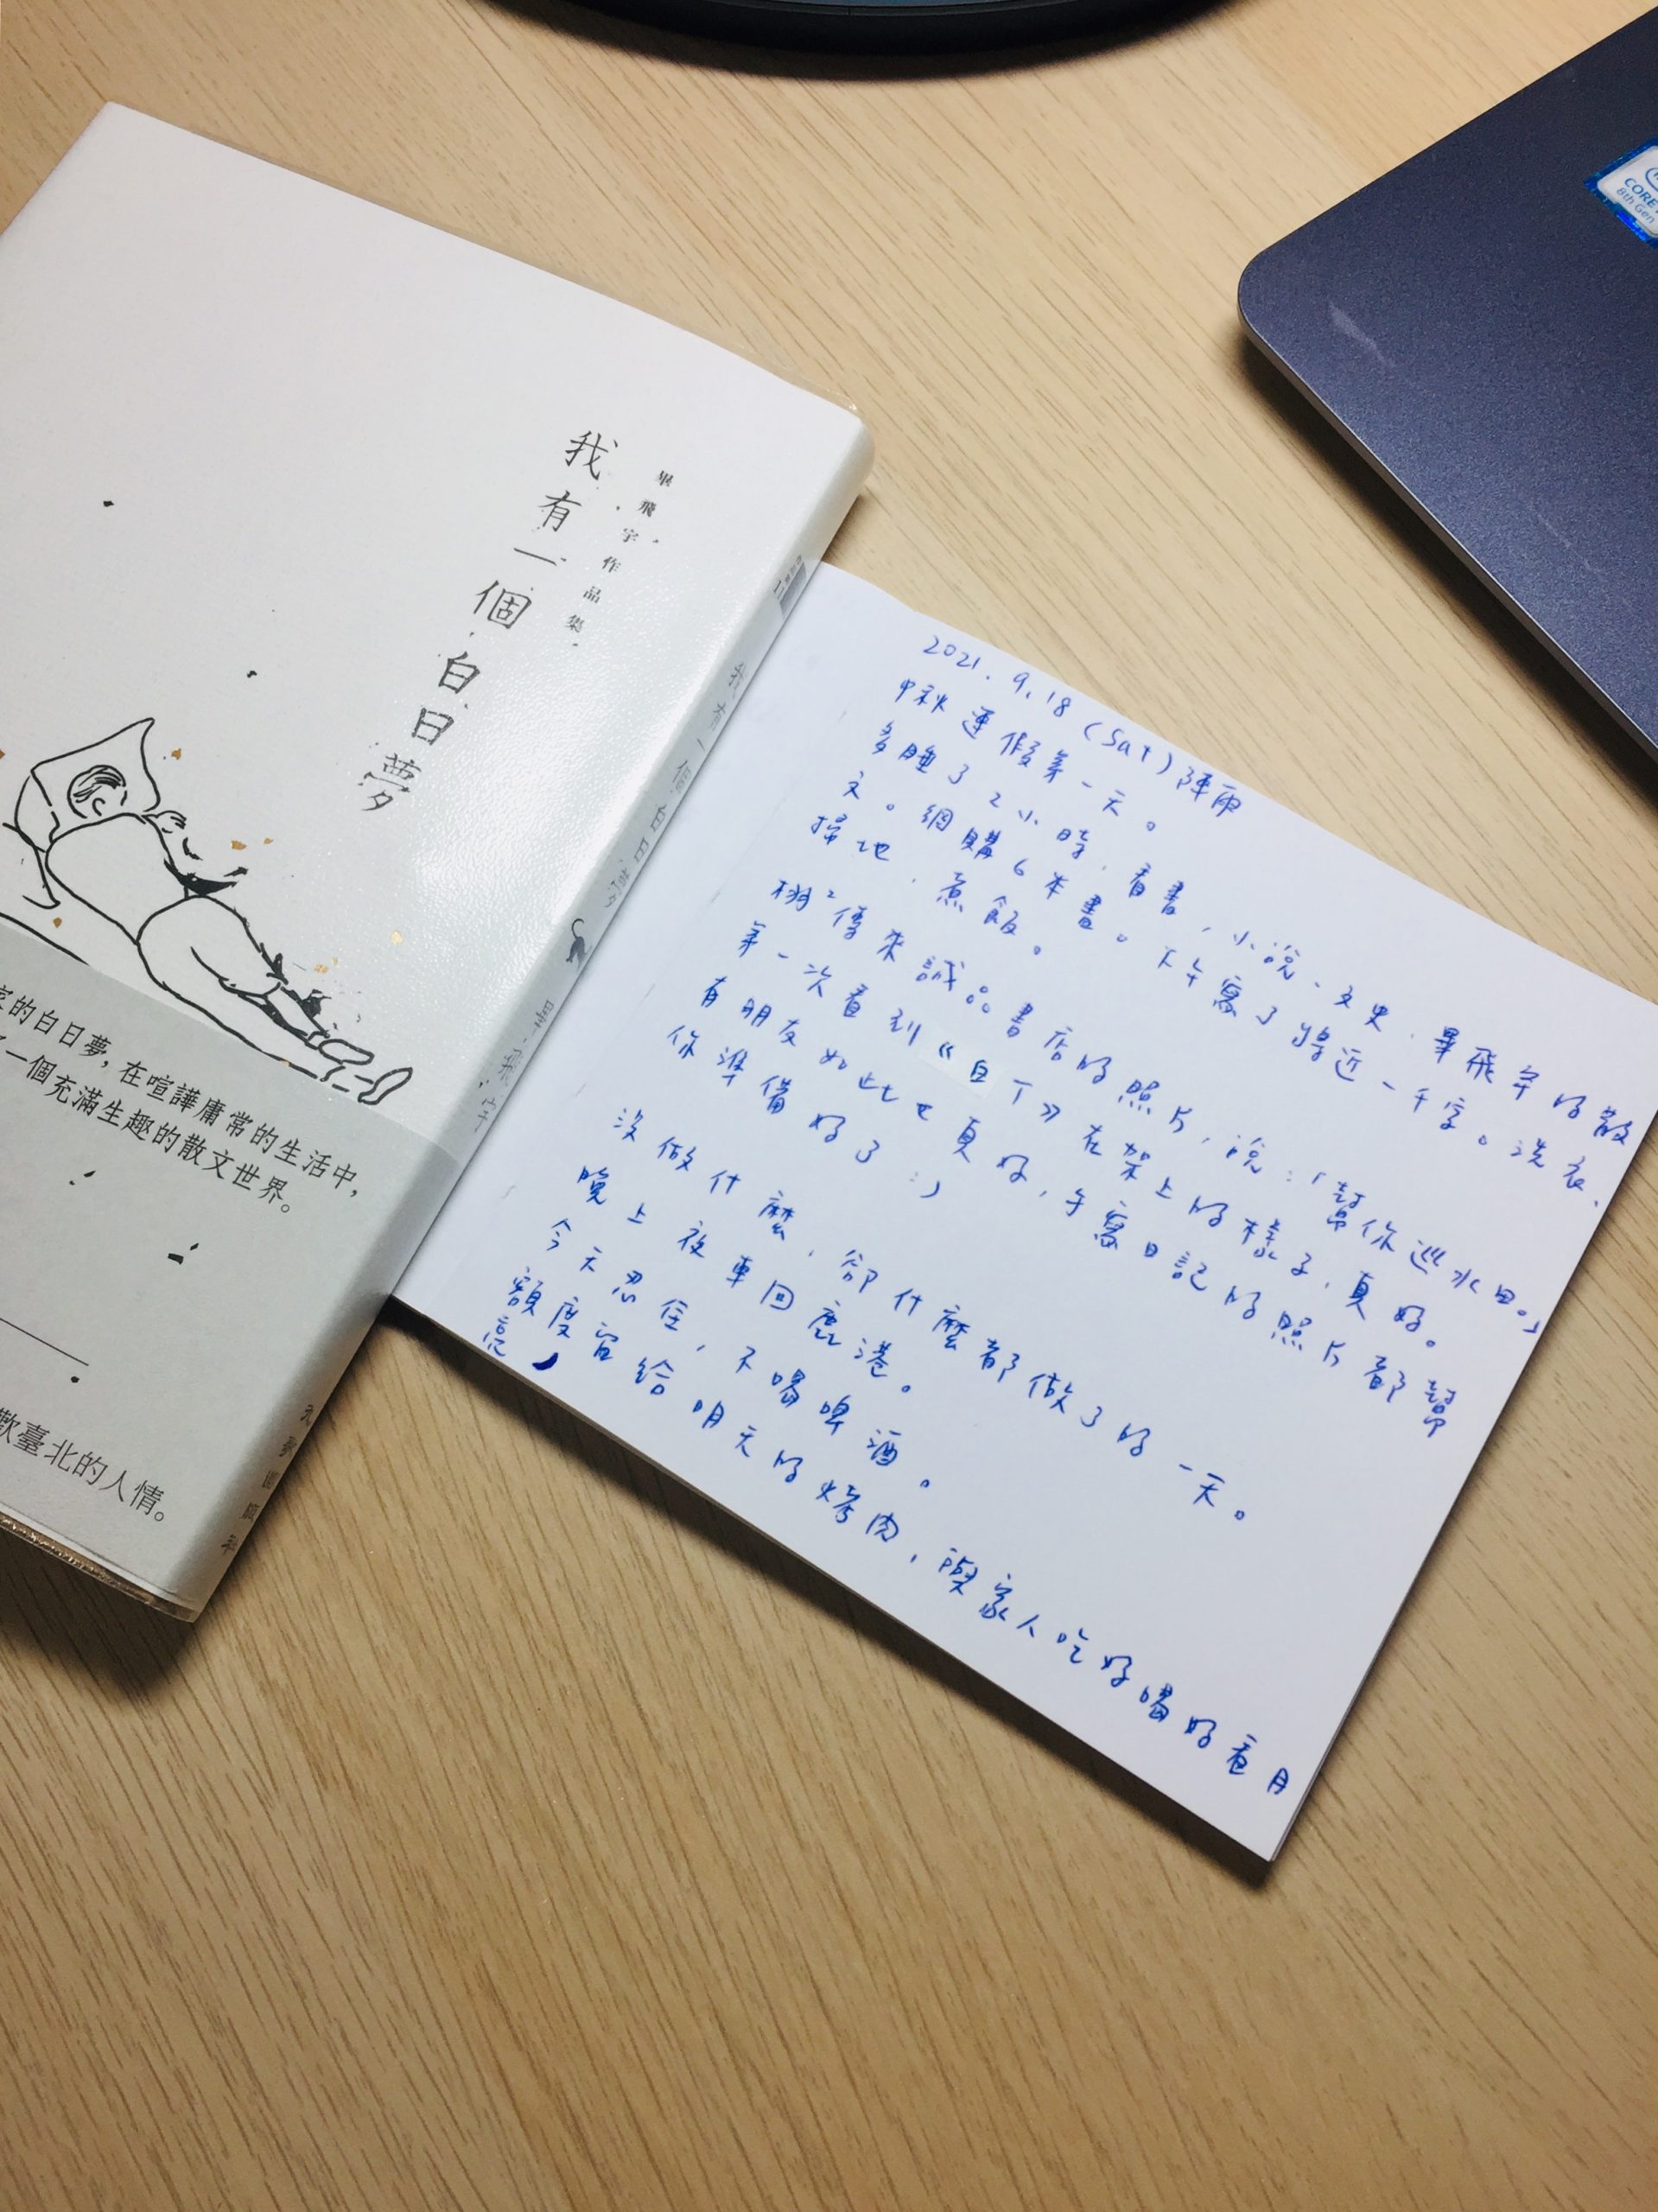 畢飛宇作品集
我有一個白日夢
我有一個白日夢
畢飛宇
的白日夢,在喧譁庸常的生活中,
一個充滿生趣的散文世界。
歡臺北的人情。
CORE
8th Gen
2021.9.18(Sat)陣雨
中秋連假第一天。
多睡了2小時,看書,小說、文史、畢飛宇的散
文。網購6本書。下午寫了將近一千字。洗衣、
掃地、煮飯。
栩栩傳來誠品書店的照片,說:「幫你巡水田。」
第一次看到《白丁》在架上的樣子,真好。
有朋友如此也真好,手寫日記的照片都幫
你準備好了:)
沒做什麼,卻什麼都做了的一天。
晚上夜車回鹿港。
今天忍住,不喝啤酒。
額度留給明天的烤肉,與家人吃好喝好看月
亮